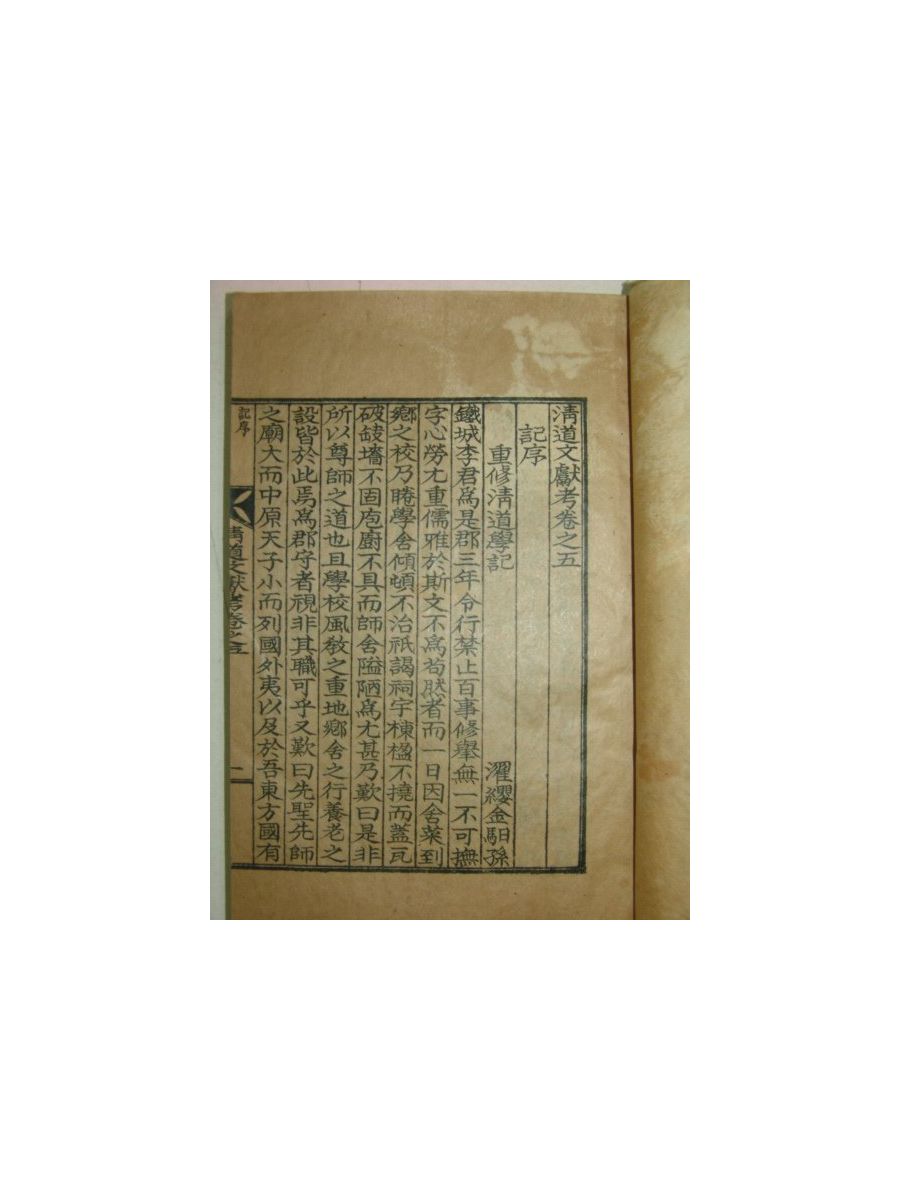 淸道文獻考卷之五
記序
重修淸道學記 濯纓金馹孫
鐵城李君爲是郡三年令行禁止百事修擧無一不可撫
字心勞尤重儒雅於斯文不爲苟然者而一日因舍菜到
鄕之校乃睠學舍傾頓不治祇謁祠宇棟楹不撓而蓋瓦
破缺墻不固庖廚不具而師舍隘陋爲尤甚乃歎曰是非
所以尊師之道也且學校風敎之重地鄕舍之行養老之
設皆於此焉爲郡守者視非其職可乎又歎曰先聖先師
之廟大而中原天子小而列國外夷以及於吾東方國有
記序
淸道文獻考卷之五
一